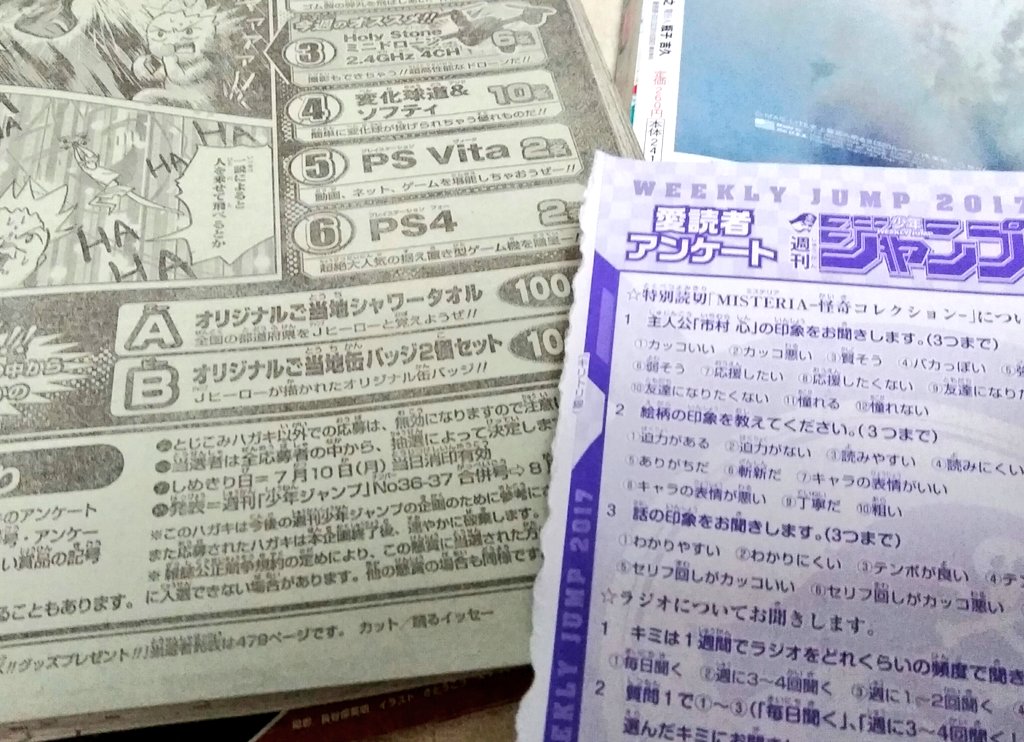 今週のオススメ!!
③ Holy Stone ミニドローン 2.4GHz 4CH 6名
撮影もできちゃう!!超高性能なドローンだ!!
④ 変化球道&ソフティ 10名
簡単に変化球が投げられちゃう優れものだ!!
⑤ PS Vita 2名
動画、ネット、ゲームを堪能しちゃおうぜー!!
⑥ PS4 2名
超絶大人気の据え置き型ゲーム機を贈呈
HA
HA
HA
HA
一説によると
人を乗せて飛べるとか
A オリジナルご当地シャワータオル 100
全国の都道府県をJヒーローと覚えようぜ!!
B オリジナルご当地缶バッジ2個セット 10
Jヒーローが描かれたオリジナル缶バッジ!!
●とじこみハガキ以外での応募は、無効になりますので注意
●当選者は全応募者の中から、抽選によって決定しま
●しめきり日=7月10日(月) 当日消印有効
●発表=週刊「少年ジャンプ」No36-37 合併号
のアンケート
号・アンケー
い賞品の記号
※このハガキは今後の週刊少年ジャンプの企画のために参考に
また応募されたハガキは本企画終了後、速やかに破棄します。
※懸賞公正競争規約の定めにより、この懸賞に当選された方
に入選できない場合があります。他の懸賞の場合も同様です
ることもあります。
グッズプレゼント!!」当選者発表は479ページです。 カット/踊るイッセー
定価260円 本体241
WEEKLY JUMP 2017
愛読者アンケート
週刊少年ジャンプ
☆特別読切「MISTERIA-怪奇コレクション-」につい
1 主人公「市村 心」の印象をお聞きします。(3つまで)
①カッコいい ②カッコ悪い ③賢そう ④バカっぽい ⑤強
⑥弱そう ⑦応援したい ⑧応援したくない ⑨友達になりた
⑩友達になりたくない ⑪憧れる ⑫憧れない
2 絵柄の印象を教えてください。(3つまで)
①迫力がある ②迫力がない ③読みやすい ④読みにくい
⑤ありがちだ ⑥斬新だ ⑦キャラの表情がいい
⑧キャラの表情が悪い ⑨丁寧だ ⑩粗い
3 話の印象をお聞きします。(3つまで)
①わかりやすい ②わかりにくい ③テンポが良い ④テ
⑤セリフ回しがカッコいい ⑥セリフ回しがカッコ悪い
☆ラジオについてお聞きします。
1 キミは1週間でラジオをどれくらいの頻度で聞き
①毎日聞く ②週に3~4回聞く ③週に1~2回聞く
2 質問1で①~③(「毎日聞く」、「週に3~4回聞く」
選んだキミにお聞き
WEEKLY JUMP 2017